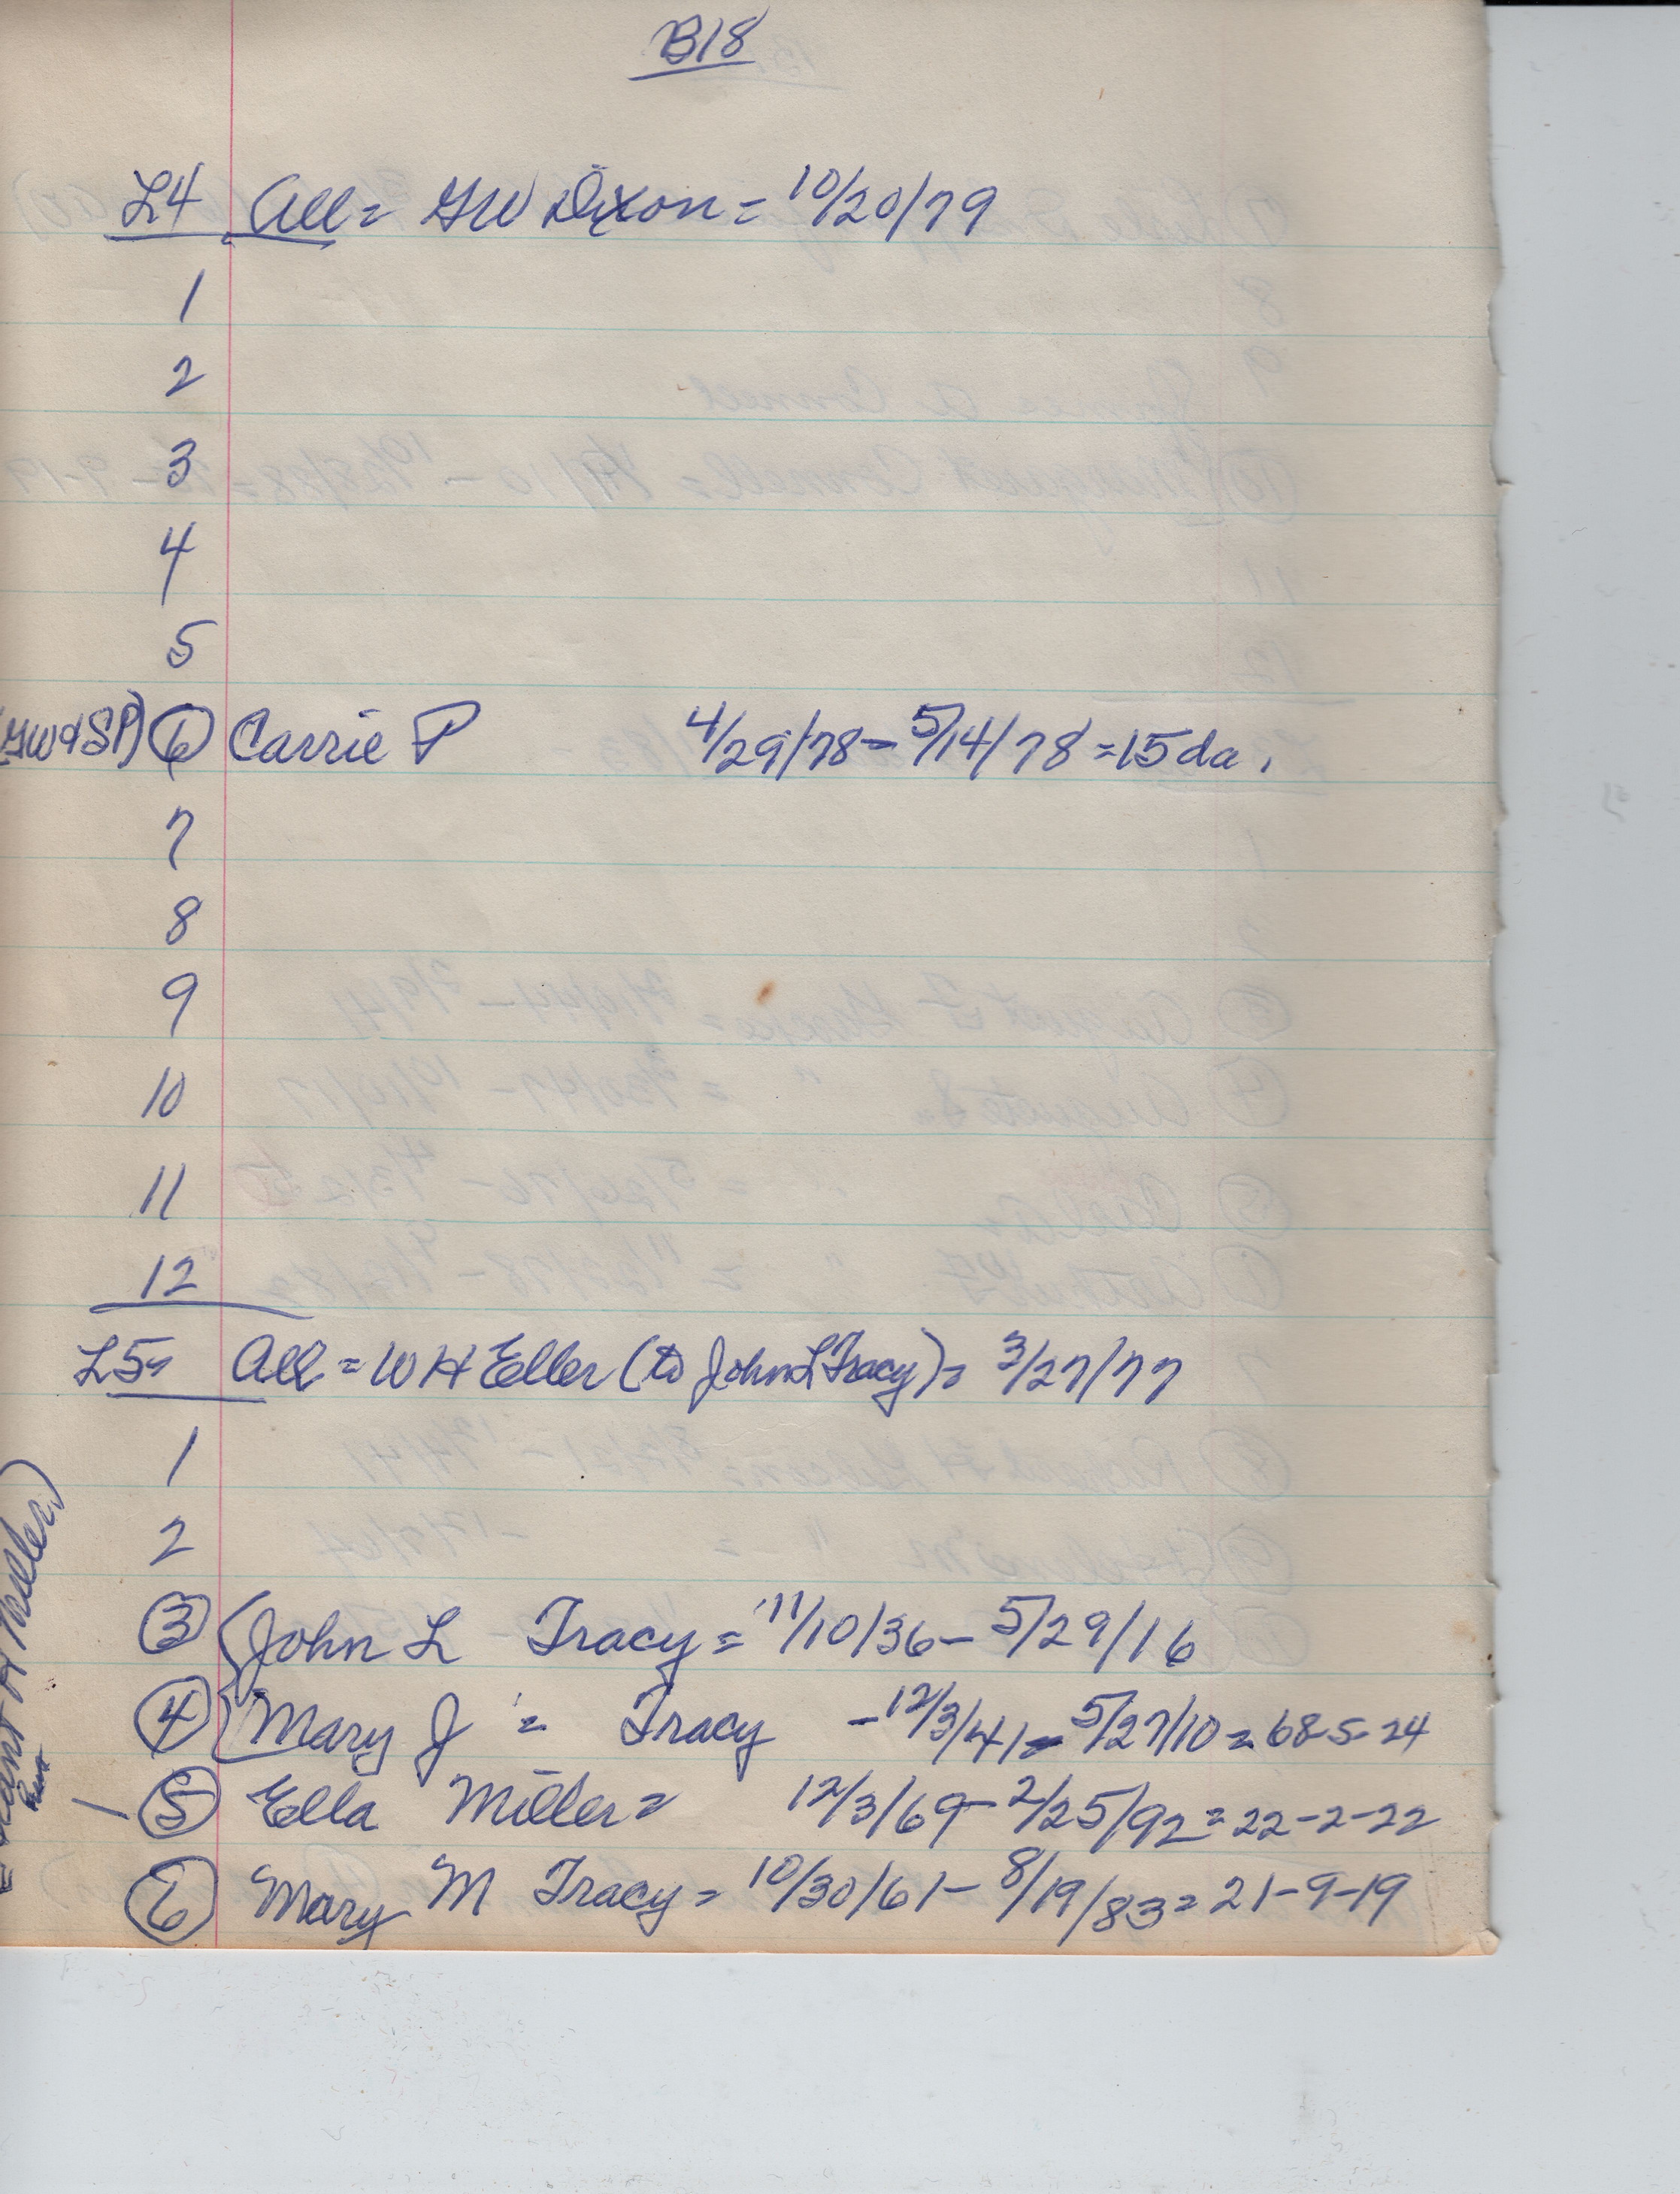 B18
L4 All = GW Dixon = 10/20/79
1
2
3
4
5
(GW & SP) 6 Carrie P 4/29/78 - 5/14/78 = 15 da.
7
8
9
10
11
12
L5 All = W H Eller (to John L Tracy) = 3/27/77
1
2
3 John L Tracy = 11/10/36 - 5/29/16
4 Mary J = Tracy - 12/3/41 - 5/27/10 = 68-5-24
5 Ella Miller = 12/3/69 - 2/25/92 = 22-2-22
6 Mary M Tracy = 10/30/61 - 8/19/83 = 21-9-19